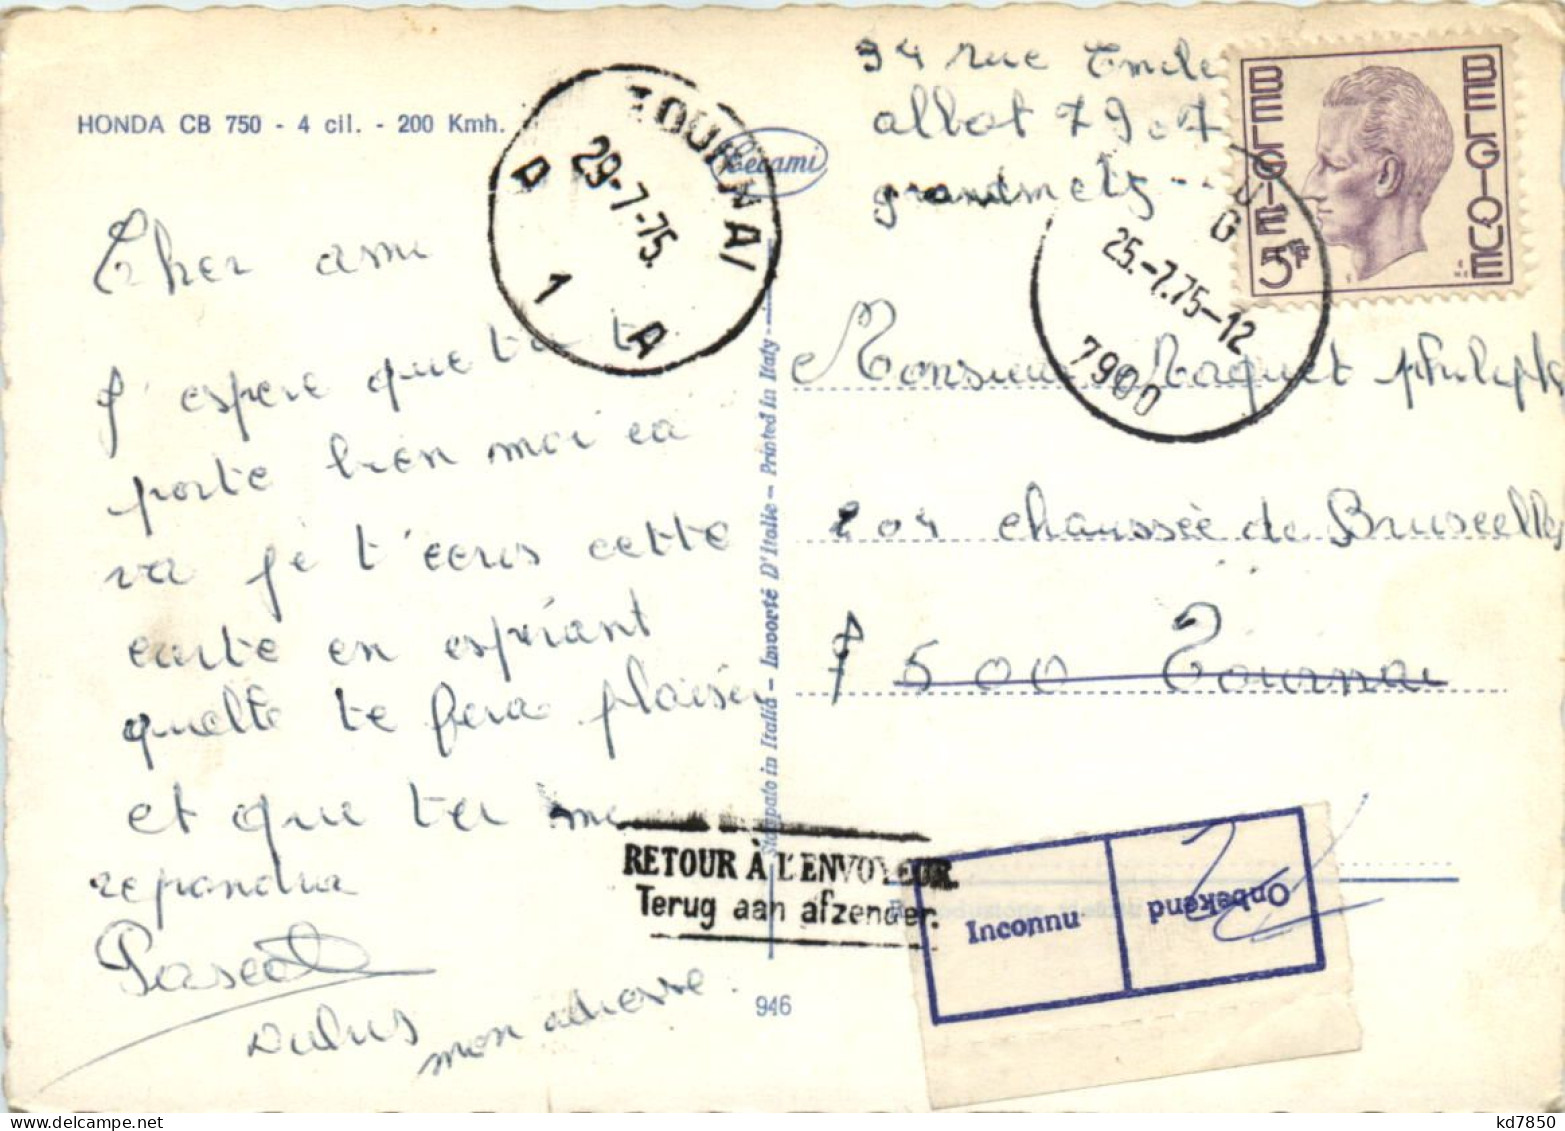 HONDA CB 750 - 4 cil. - 200 Kmh.
Cher ami
J'espere que tu te
porte bien moi ca
va je t'ecris cette
carte en espérant
quelle te fera plaisir
et que tu me
repondra
Pascal
Dubus
mon adresse.
94 rue Emile
allot 7907
grandmetz
TOURNAI
29-7-75.
A 1 A
Cecami
BELGIE BELGIQUE
5F
25.-7.75-12
7900
Monsieur Maquet philiphe
204 chaussée de Bruxelles
7500 Tournai
RETOUR À L'ENVOYEUR
Terug aan afzender.
Inconnu
Onbekend
Stampato in Italia - Imvorté D'Italie - Printed in Italy
946
kd7850